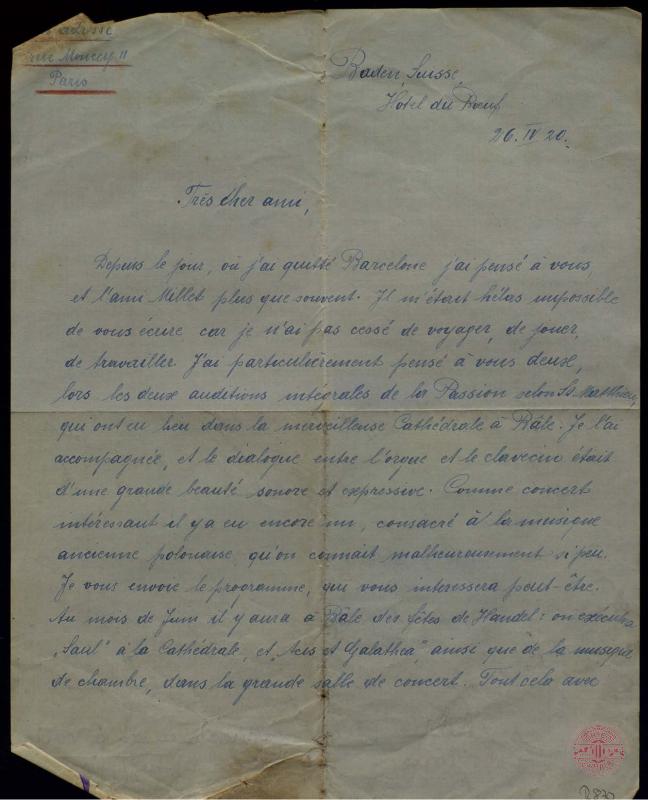 adresse
rue Moncey 11
Paris
Baden, Suisse,
Hôtel du Bœuf
26. IV 20.
Très cher ami,
Depuis le jour, où j'ai quitté Barcelone j'ai pensé à vous,
et l'ami Millet plus que souvent. Il m'était hélas impossible
de vous écrire car je n'ai pas cessé de voyager, de jouer,
de travailler. J'ai particulièrement pensé à vous deux,
lors les deux auditions integrales de la Passion selon St. Matthieu,
qui ont eu lieu dans la merveilleuse Cathédrale à Bâle. Je l'ai
accompagnée, et le dialogue entre l'orgue et le clavecin était
d'une grande beauté sonore et expressive. Comme concert
intéressant il y a eu encore un, consacré à la musique
ancienne polonaise, qu'on connait malheureusement si peu.
Je vous envoie le programme, qui vous interessera peut-être.
Au mois de Juin il y aura à Bâle des fêtes de Handel: on exécutera
„Saul" à la Cathédrale, et „Acis et Galathea", ainsi que de la musique
de chambre, dans la grande salle de concert. Tout cela avec